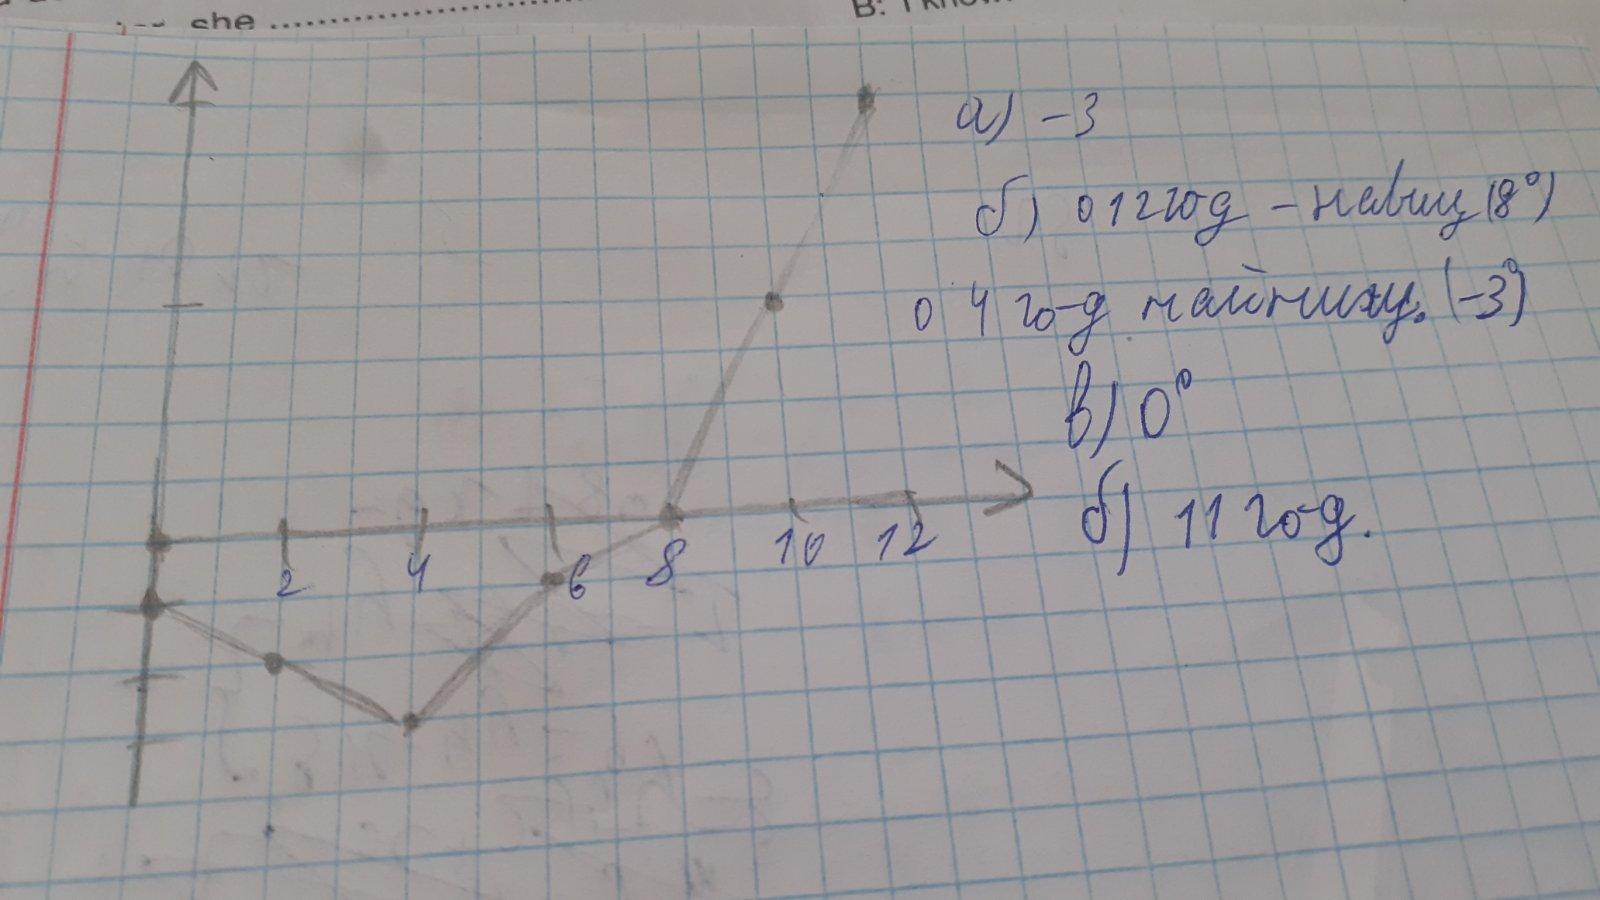 she ........................
B: I know
а) -3
б) о 12 год - навищ (8°)
о 4 год найнижч. (-3°)
в) 0°
б) 11 год.
2 4 6 8 10 12